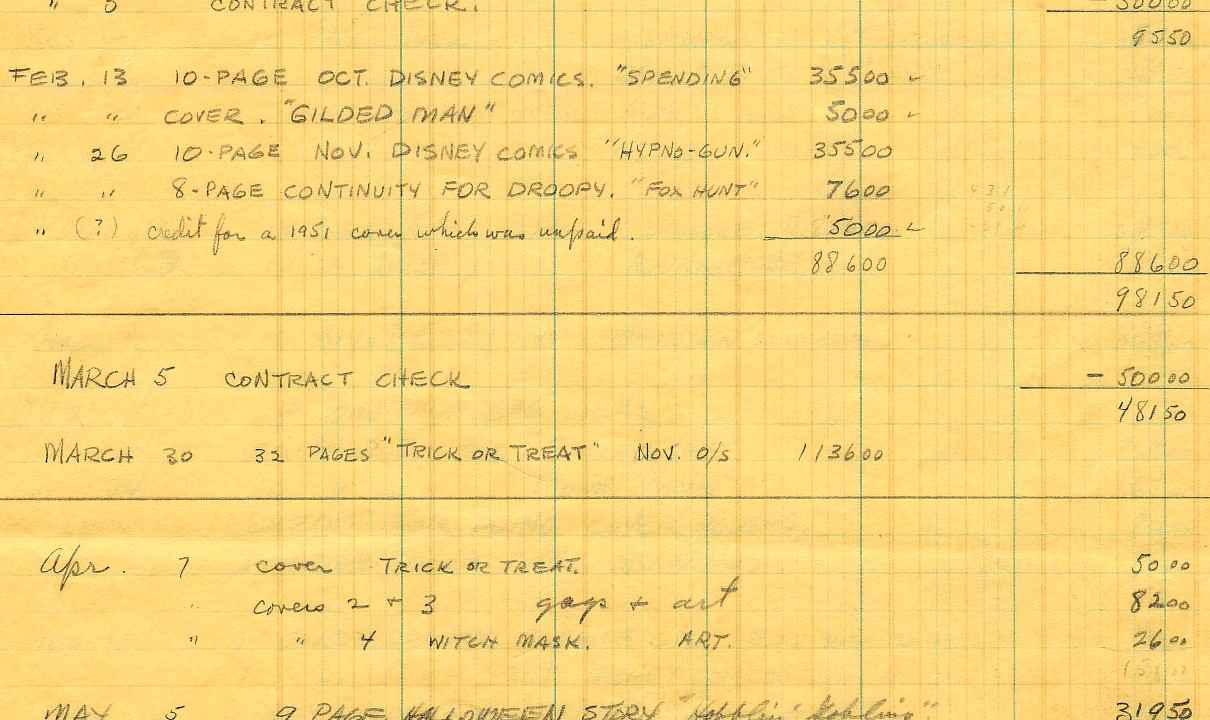 " 5 CONTRACT CHECK. - 50000
9550
FEB. 13 10-PAGE OCT. DISNEY COMICS. "SPENDING" 35500
" " COVER. "GILDED MAN" 5000
" 26 10-PAGE NOV. DISNEY COMICS "HYPNO-GUN." 35500
" " 8-PAGE CONTINUITY FOR DROOPY. "FOX HUNT" 7600
" (?) credit for a 1951 cover which was unpaid. 5000
88600 88600
98150
MARCH 5 CONTRACT CHECK - 50000
48150
MARCH 30 32 PAGES "TRICK OR TREAT" NOV. O/S 113600
Apr. 7 cover TRICK OR TREAT. 5000
" covers 2 + 3 gags + art 8200
" " 4 WITCH MASK. ART. 2600
MAY 5 9 PAGE HALLOWEEN STORY "Hobblin' Goblins" 31950